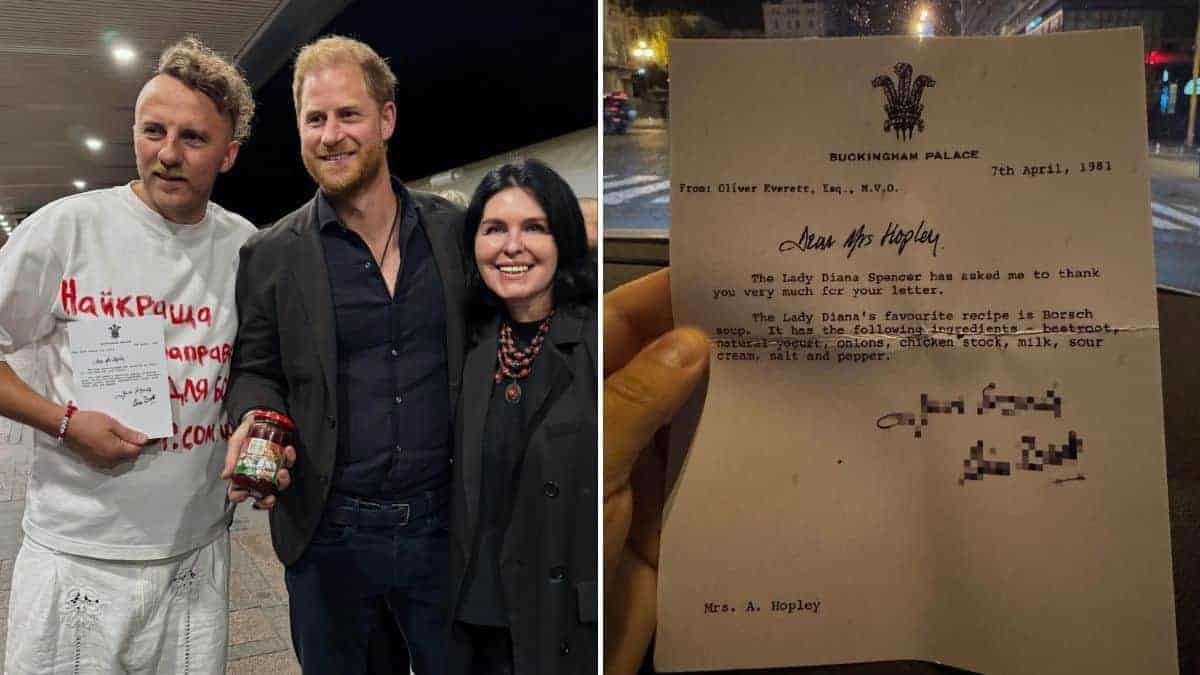 Найкраща
заправ
для бо
.com.u
BUCKINGHAM PALACE
7th April, 1981
From: Oliver Everett, Esq., M.V.O.
Dear Mrs Hopley.
The Lady Diana Spencer has asked me to thank
you very much for your letter.
The Lady Diana's favourite recipe is Borsch
soup. It has the following ingredients - beetroot,
natural yogurt, onions, chicken stock, milk, sour
cream, salt and pepper.
Mrs. A. Hopley